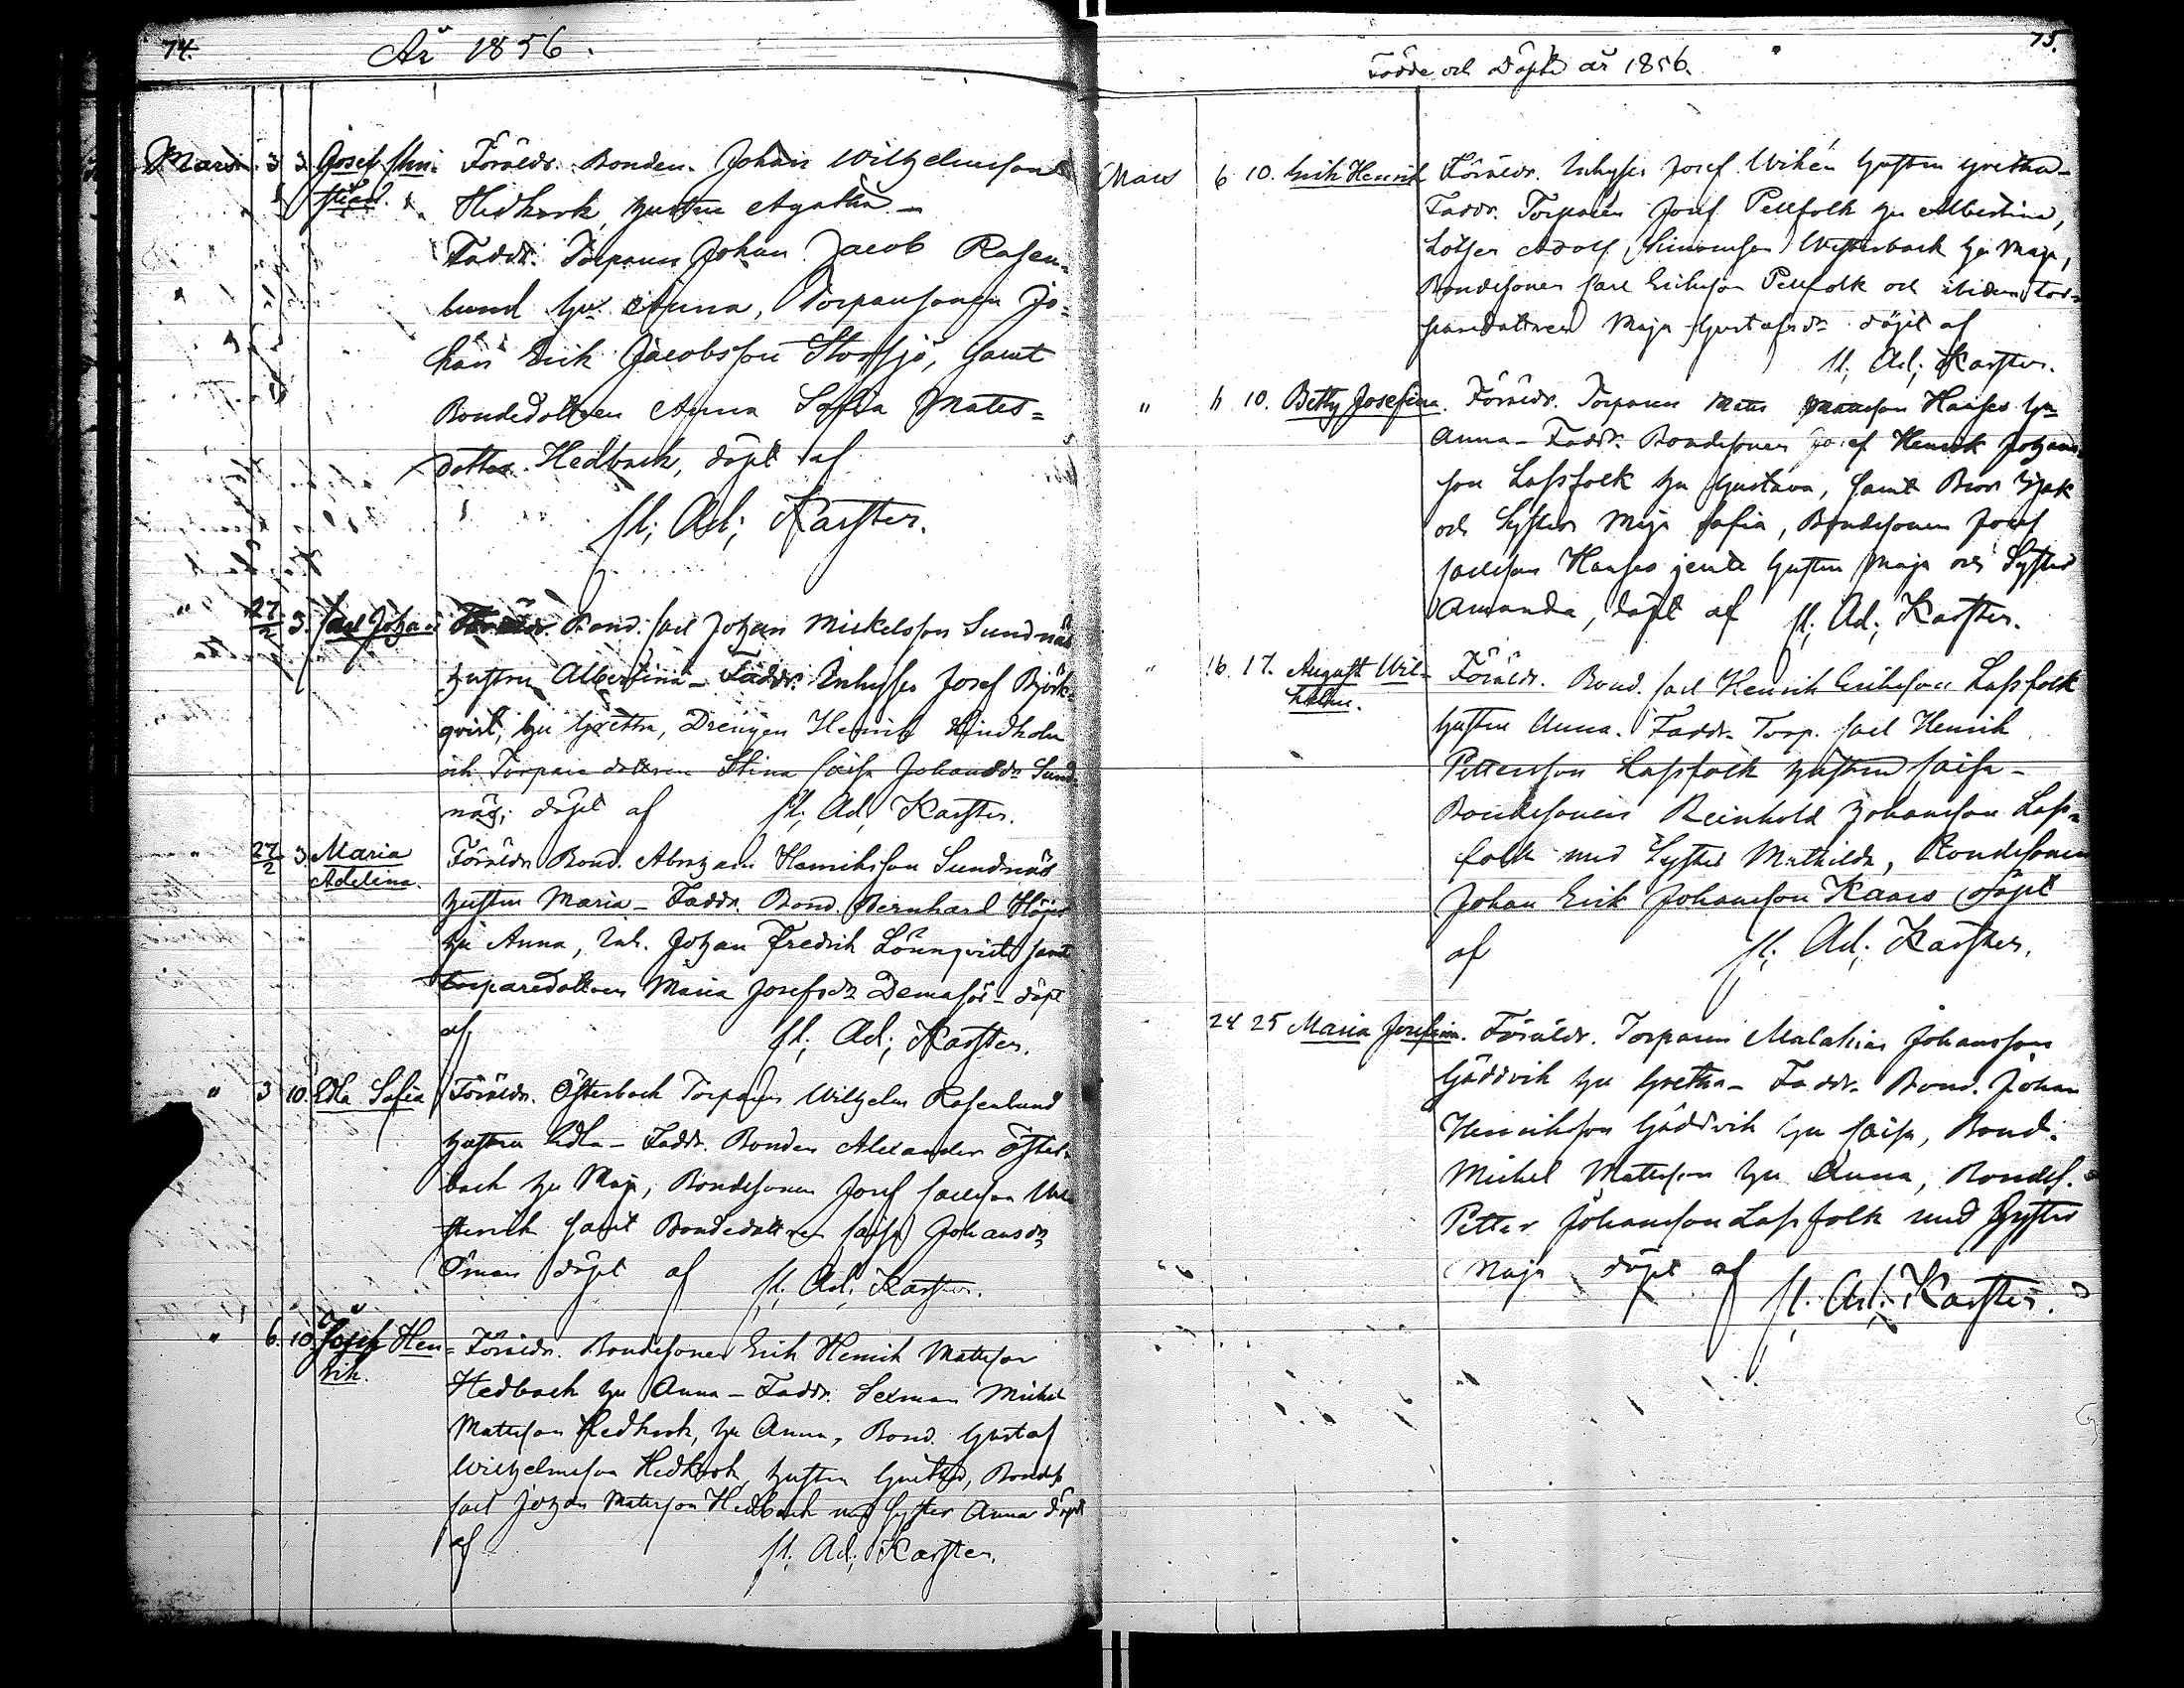 74.
År 1856.
Mars 3 3 Josef Föräldr. Bonden Johan Wilhelmsson
Hedkrok, hustru Agatha –
Faddr. Torparen Johan Jacob Rosen-
lund hu Anna, Torparsonen Jo-
han Erik Jacobsson Storsjö, samt
Bondedottren Anna Sofia Mates-
dotter Hedback, döpt af
Fl; Ad; Karsten.
" 27/2 3. Carl Johan Föräldr. Bond. Carl Johan Mickelsson Sundnäs
hustru Albertina – Faddr. Inhyses Josef Björk-
qvist, hu Gretha, Drengen Henrik Lindholm
och Torparedottren Stina Caisa Johansdr Sund-
näs, döpt af Fl; Ad; Karsten.
" 27/2 3 Maria Föräldr. Bond. Abraham Henriksson Sundnäs
Adelina.
hustru Maria – Faddr. Bond. Bernhard
hu Anna, Inh. Johan Fredrik Lönnqvist samt
torparedottren Maria Josefsdr – döpt
af Fl; Ad; Karsten.
" 3 10. Edla Sofia Föräldr. Österback Torparen Wilhelm Rosenlund
hustru Edla – Faddr. Bonden Alexander Öster-
back hu Maja, Bondesonen Josef Carlsson
samt Bondedottren Caisa Johansdr
Öman döpt af Fl; Ad; Karsten.
" 6. 10. Josef Hen- Föräldr. Bondesonen Erik Henrik Mattsson
rik.
Hedback hu Anna – Faddr. Sexman Mickel
Mattsson Hedkrok, hu Anna, Bond. Gustaf
Wilhelmsson Hedkrok, hustru Gretha, Bondes.
Carl Johan Matsson Hedback med Syster Anna döpt
af Fl; Ad; Karsten.
75.
Födde och Döpte år 1856.
Mars 6 10. Erik Henrik Föräldr. Inhyses Josef Wikén hustru Gretha –
Faddr. Torparen Josef Pellfolk hu Albertina,
Adolf Simonsson Westerback hu Maja,
Bondesonen Carl Eriksson Pellfolk och ibidem tor-
paredottren Maja Gustafsdr döpt af
Fl; Ad; Karsten.
" 11 10. Betty Josefina. Föräldr. Torparen Mats Mattsson Hanses hu
Anna – Faddr. Bondesonen Josef Henrik Johans-
son Lassfolk hu Gustava, samt Bror Isak
och Syster Maja Sofia, Bondesonen Josef
Carlsson Hanses jemte hustru Maja och Syster
Amanda, döpt af Fl; Ad; Karsten.
" 16 17. August Wil- Föräldr. Bond. Carl Henrik Eriksson Lassfolk
helm.
hustru Anna. Faddr. Torp. Carl Henrik
Pettersson Lassfolk hustru Caisa –
Bondesonen Reinhold Johansson Lass-
folk med Syster Mathilda, Bondesonen
Johan Erik Johansson Kaars döpt
af Fl; Ad; Karsten.
24 25 Maria Josefina. Föräldr. Torparen Malakias Johansson
Gäddvik hu Gretha – Faddr. Bond. Johan
Henriksson Gäddvik hu Caisa, Bond.
Mickel Mattsson hu Anna, Bondes.
Petter Johansson Lassfolk med Syster
Maja döpt af
Fl; Ad; Karsten.